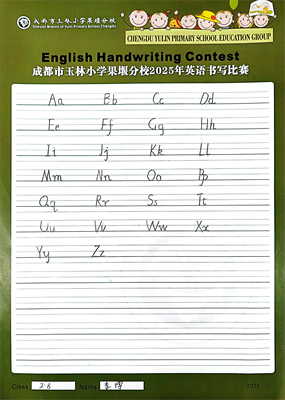 成都市玉林小学果堰分校
Guoyan Branch of Yulin Primary School, Chengdu
CHENGDU YULIN PRIMARY SCHOOL EDUCATION GROUP
English Handwriting Contest
成都市玉林小学果堰分校2025年英语书写比赛
Aa Bb Cc Dd
Ee Ff Gg Hh
Ii Jj Kk Ll
Mm Nn Oo Pp
Qq Rr Ss Tt
Uu Vv Ww Xx
Yy Zz
Class 2.8 Name
2025